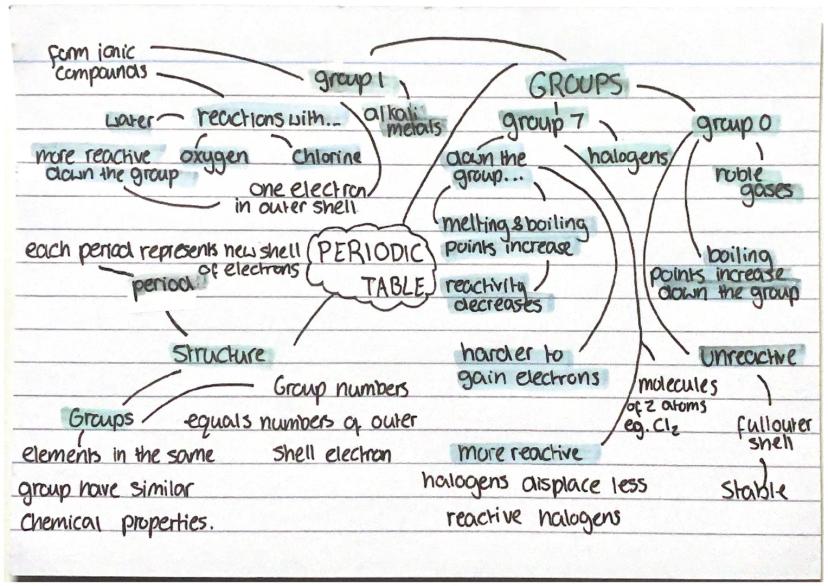 form ionic
compounds
group 1
alkali
metals
water
reactions with...
oxygen
chlorine
more reactive
down the group
one electron
in outer shell
GROUPS
group 7
halogens
down the
group...
melting & boiling
points increase
reactivity
decreases
harder to
gain electrons
molecules
of 2 atoms
eg. Cl2
more reactive
halogens displace less
reactive halogens
group 0
noble
gases
boiling
points increase
down the group
unreactive
full outer
shell
Stable
PERIODIC
TABLE
each period represents new shell
of electrons
period
Structure
Groups
Group numbers
equals numbers of outer
shell electron
elements in the same
group have similar
chemical properties.